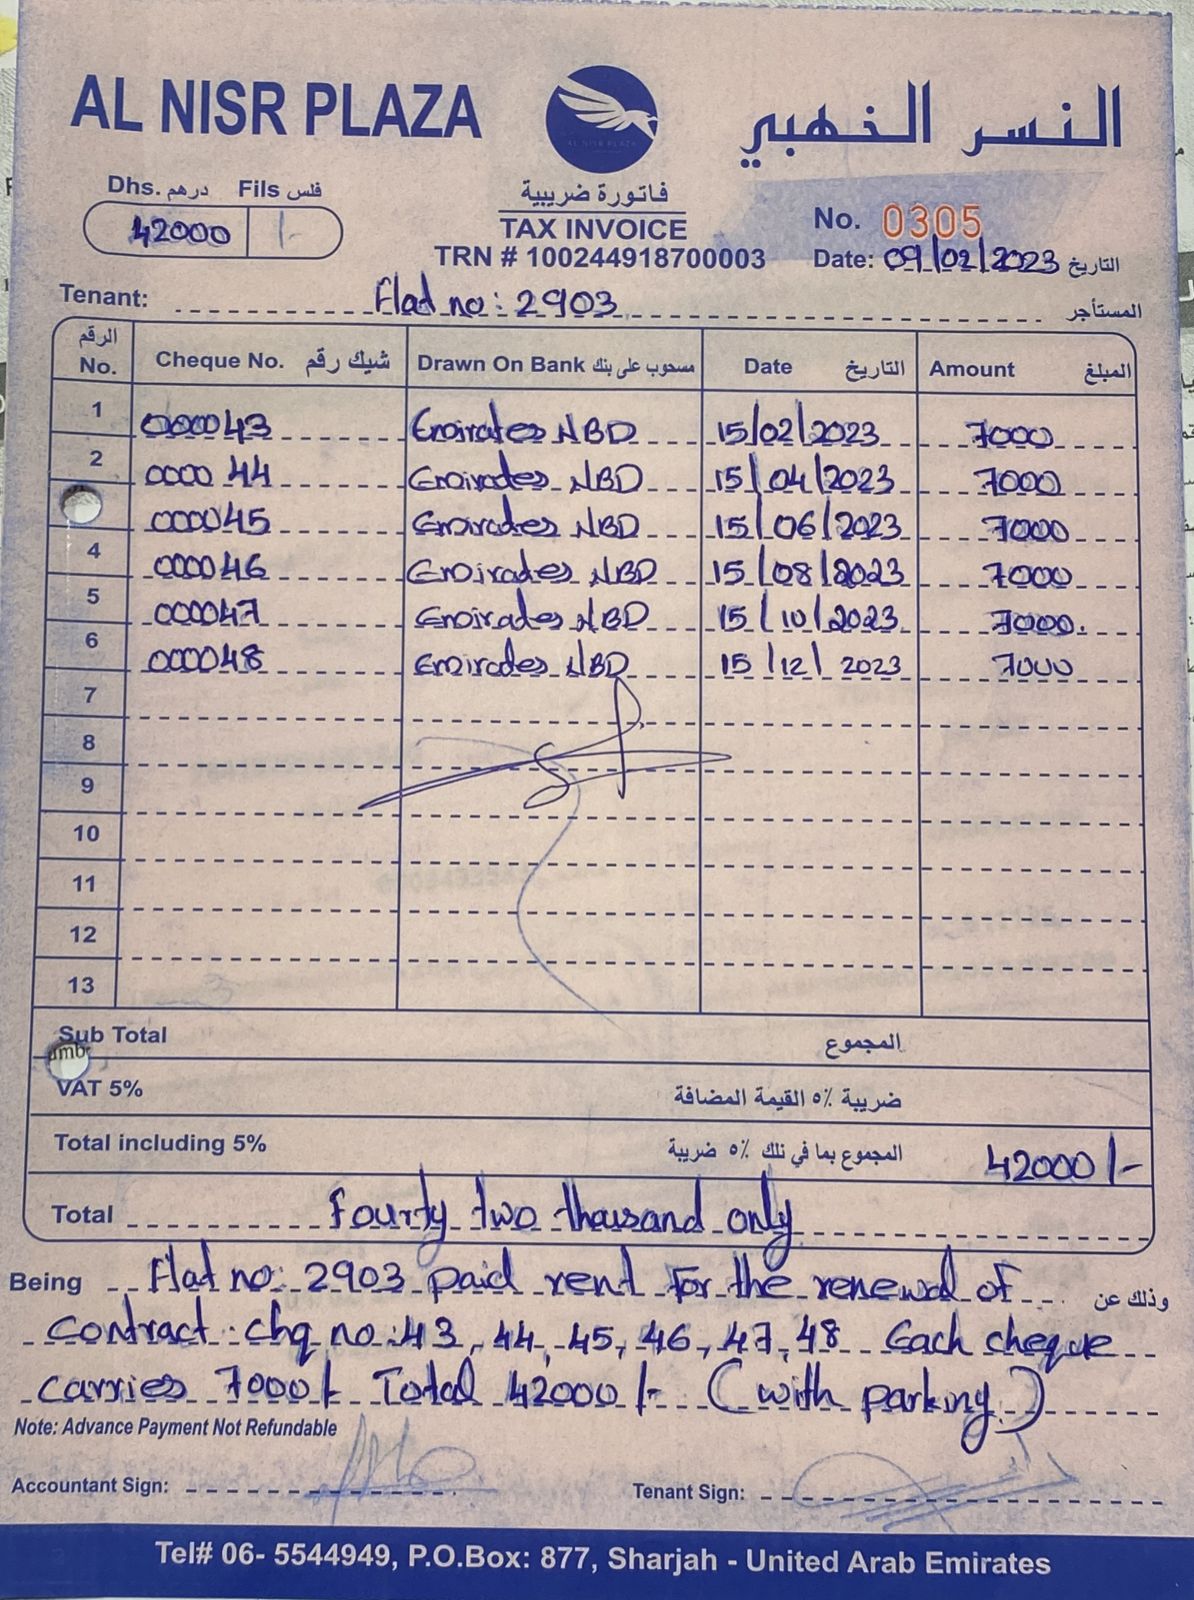 AL NISR PLAZA
النسر الذهبي
AL NISR PLAZA
Dhs. درهم Fils فلس
42000 /-
فاتورة ضريبية
TAX INVOICE
TRN # 100244918700003
No. 0305
Date: 09/02/2023 التاريخ
Tenant: Flat no: 2903 المستأجر
الرقم No. Cheque No. شيك رقم Drawn On Bank مسحوب على بنك Date التاريخ Amount المبلغ
1 000043 Emirates NBD 15/02/2023 7000
2 000044 Emirates NBD 15/04/2023 7000
000045 Emirates NBD 15/06/2023 7000
4 000046 Emirates NBD 15/08/2023 7000
5 000047 Emirates NBD 15/10/2023 7000.
6 000048 Emirates NBD 15/12/2023 7000
7
8
9
10
11
12
13
Sub Total المجموع
VAT 5% ضريبة ٥٪ القيمة المضافة
Total including 5% المجموع بما في ذلك ٥٪ ضريبة 42000/-
Total Fourty two thousand only
Being Flat no: 2903 paid rent for the renewal of وذلك عن
contract. chq no: 43, 44, 45, 46, 47, 48 Each cheque
carries 7000/- Total 42000/- (with parking)
Note: Advance Payment Not Refundable
Accountant Sign: Tenant Sign:
Tel# 06- 5544949, P.O.Box: 877, Sharjah - United Arab Emirates